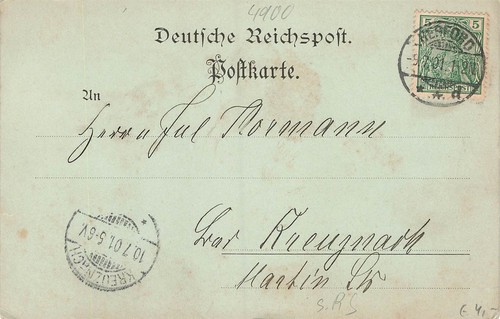 4900
Deutsche Reichspost.
Postkarte.
5 5
HERFORD
9.7.01. 11-12V
* * d
An
Herrn Jul Normann
Bad Kreuznach
Martin Str
KREUZNACH
10.7.01.5-6V